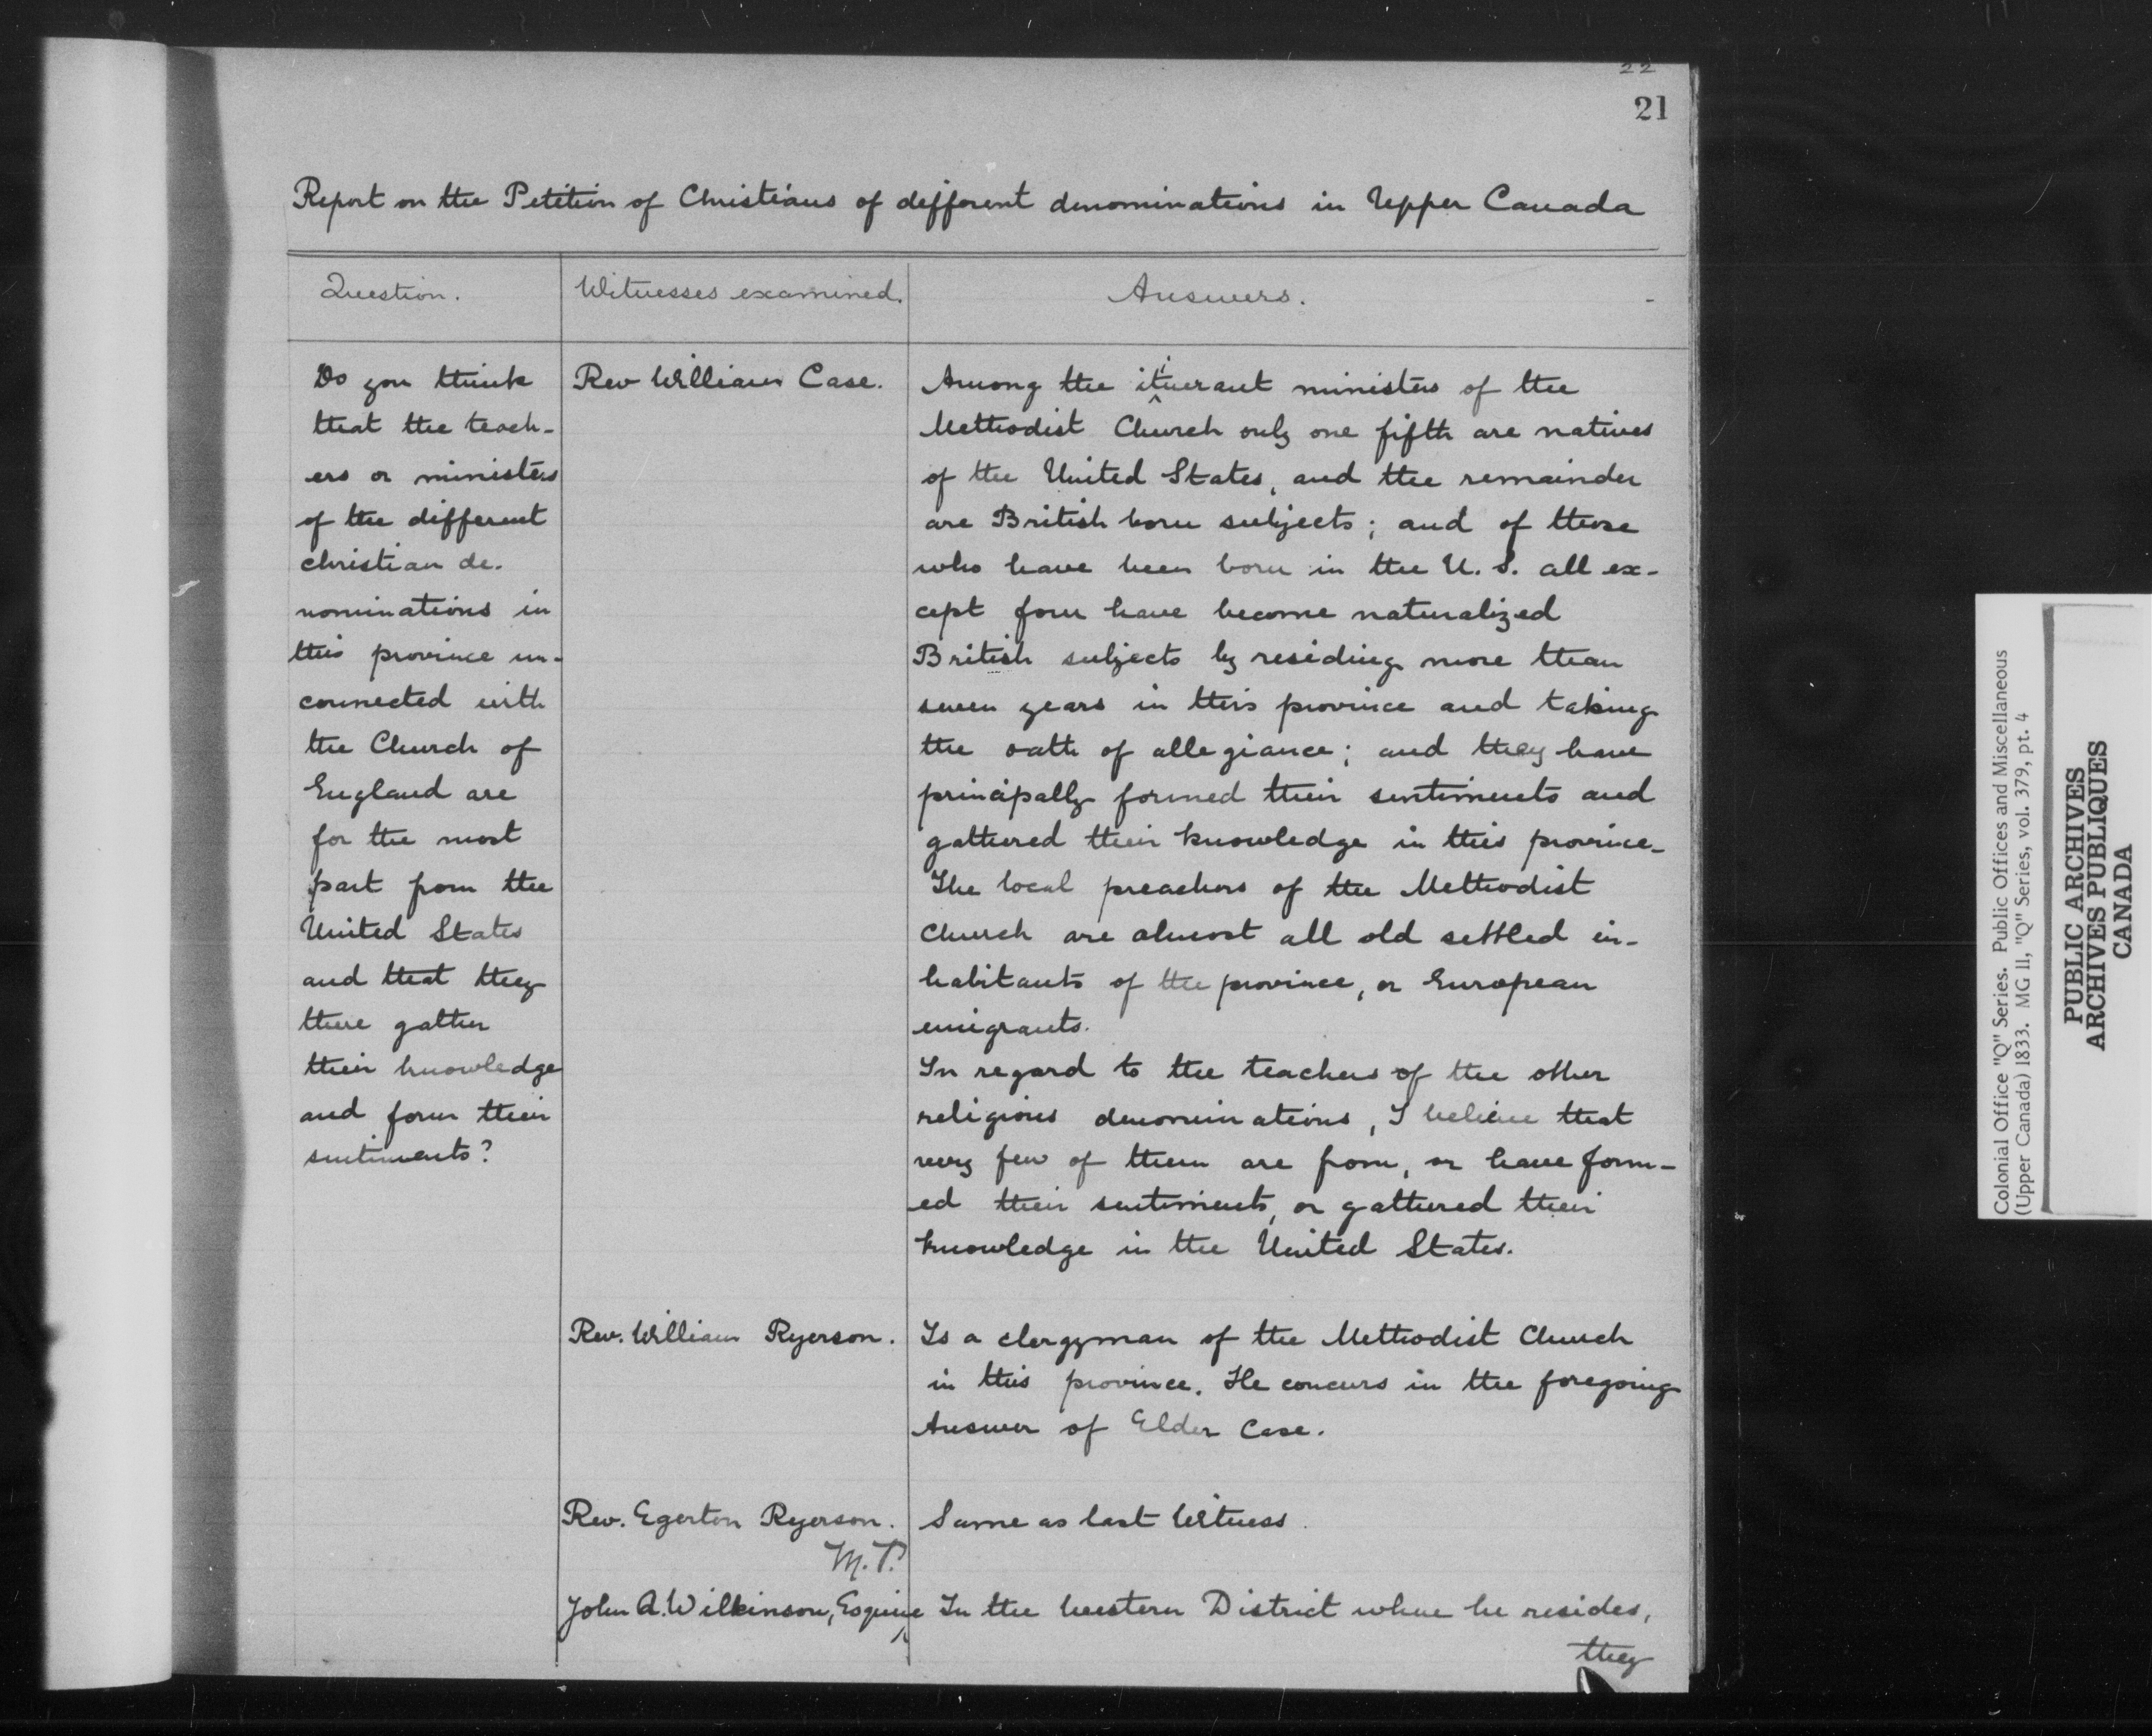 22
21
Report on the Petition of Christians of different denominations in Upper Canada
Question.
Witnesses examined.
Answers.
Do you think
that the teach-
ers or ministers
of the different
christian de-
nominations in
this province un-
connected with
the Church of
England are
for the most
part from the
United States
and that they
there gather
their knowledge
and form their
sentiments?
Rev William Case.
Among the itinerant ministers of the
Methodist Church only one fifth are natives
of the United States, and the remainder
are British born subjects; and of those
who have been born in the U.S. all ex-
cept four have become naturalized
British subjects by residing more than
seven years in this province and taking
the oath of allegiance; and they have
principally formed their sentiments and
gathered their knowledge in this province.
The local preachers of the Methodist
Church are almost all old settled in-
habitants of the province, or European
emigrants.
In regard to the teachers of the other
religious denominations, I believe that
very few of them are from, or have form-
ed their sentiments, or gathered their
knowledge in the United States.
Rev. William Ryerson.
Is a clergyman of the Methodist Church
in this province. He concurs in the foregoing
Answer of Elder Case.
Rev. Egerton Ryerson.
Same as last Witness.
M.P.
John A. Wilkinson, Esquire
In the western District where he resides,
they
Colonial Office "Q" Series. Public Offices and Miscellaneous
(Upper Canada) 1833. MG 11, "Q" Series, vol. 379, pt. 4
PUBLIC ARCHIVES
ARCHIVES PUBLIQUES
CANADA